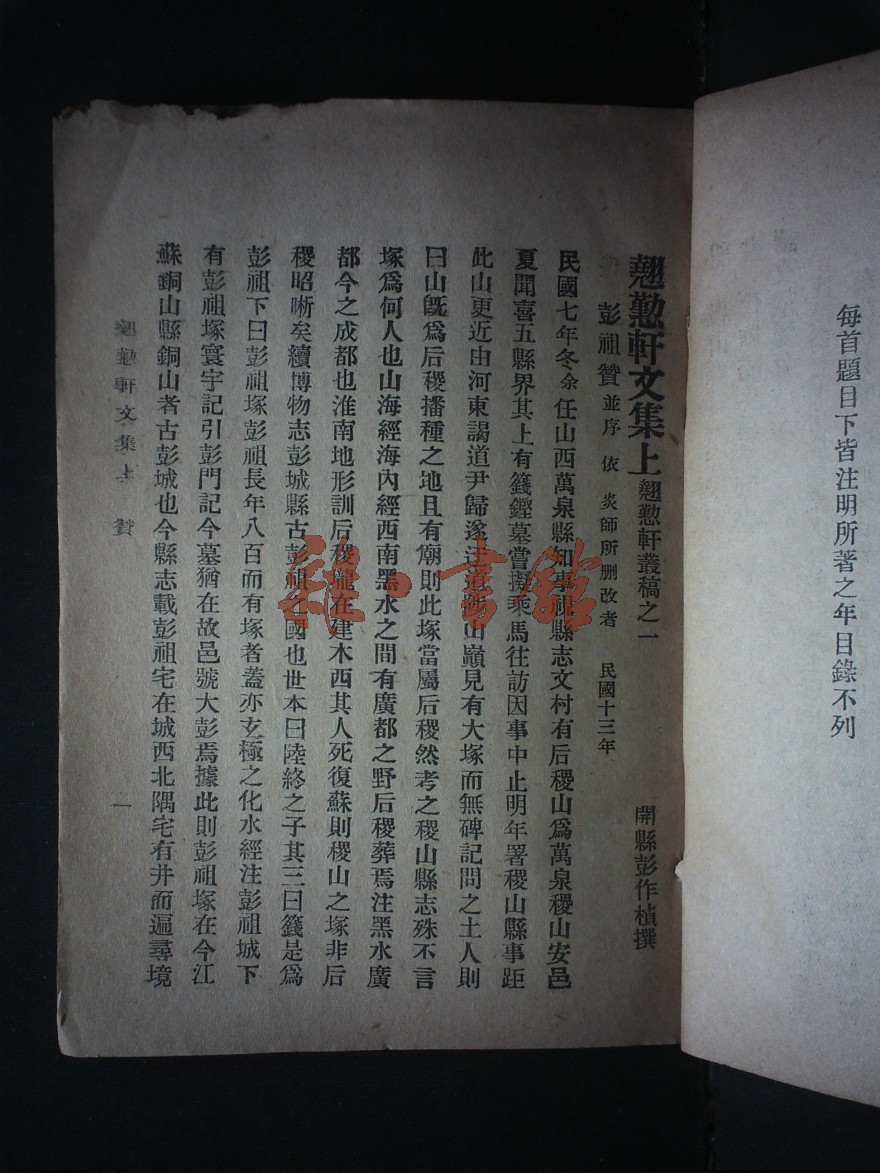 每首題目下皆注明所著之年目錄不列
翹懃軒文集上 翹懃軒叢稿之一
開縣彭作楨撰
彭祖贊並序 依 炎師所刪改者 民國十三年
民國七年冬余任山西萬泉縣知事視縣志文村有后稷山爲萬泉稷山安邑
夏聞喜五縣界其上有籛鏗墓嘗擬乘馬往訪因事中止明年署稷山縣事距
此山更近由河東謁道尹歸遂迂道陟山巔見有大塚而無碑記問之土人則
曰山旣爲后稷播種之地且有廟則此塚當屬后稷然考之稷山縣志殊不言
塚爲何人也山海經海內經西南黑水之間有廣都之野后稷葬焉注黑水廣
都今之成都也淮南地形訓后稷壠在建木西其人死復蘇則稷山之塚非后
稷昭晰矣續博物志彭城縣古彭祖之國也世本曰陸終之子其三曰籛是爲
彭祖下曰彭祖塚彭祖長年八百而有塚者蓋亦玄極之化水經注彭祖城下
有彭祖塚寰宇記引彭門記今墓猶在故邑號大彭焉據此則彭祖塚在今江
蘇銅山縣銅山者古彭城也今縣志載彭祖宅在城西北隅宅有井而遍尋境
翹懃軒文集上 贊 一
雜·書館